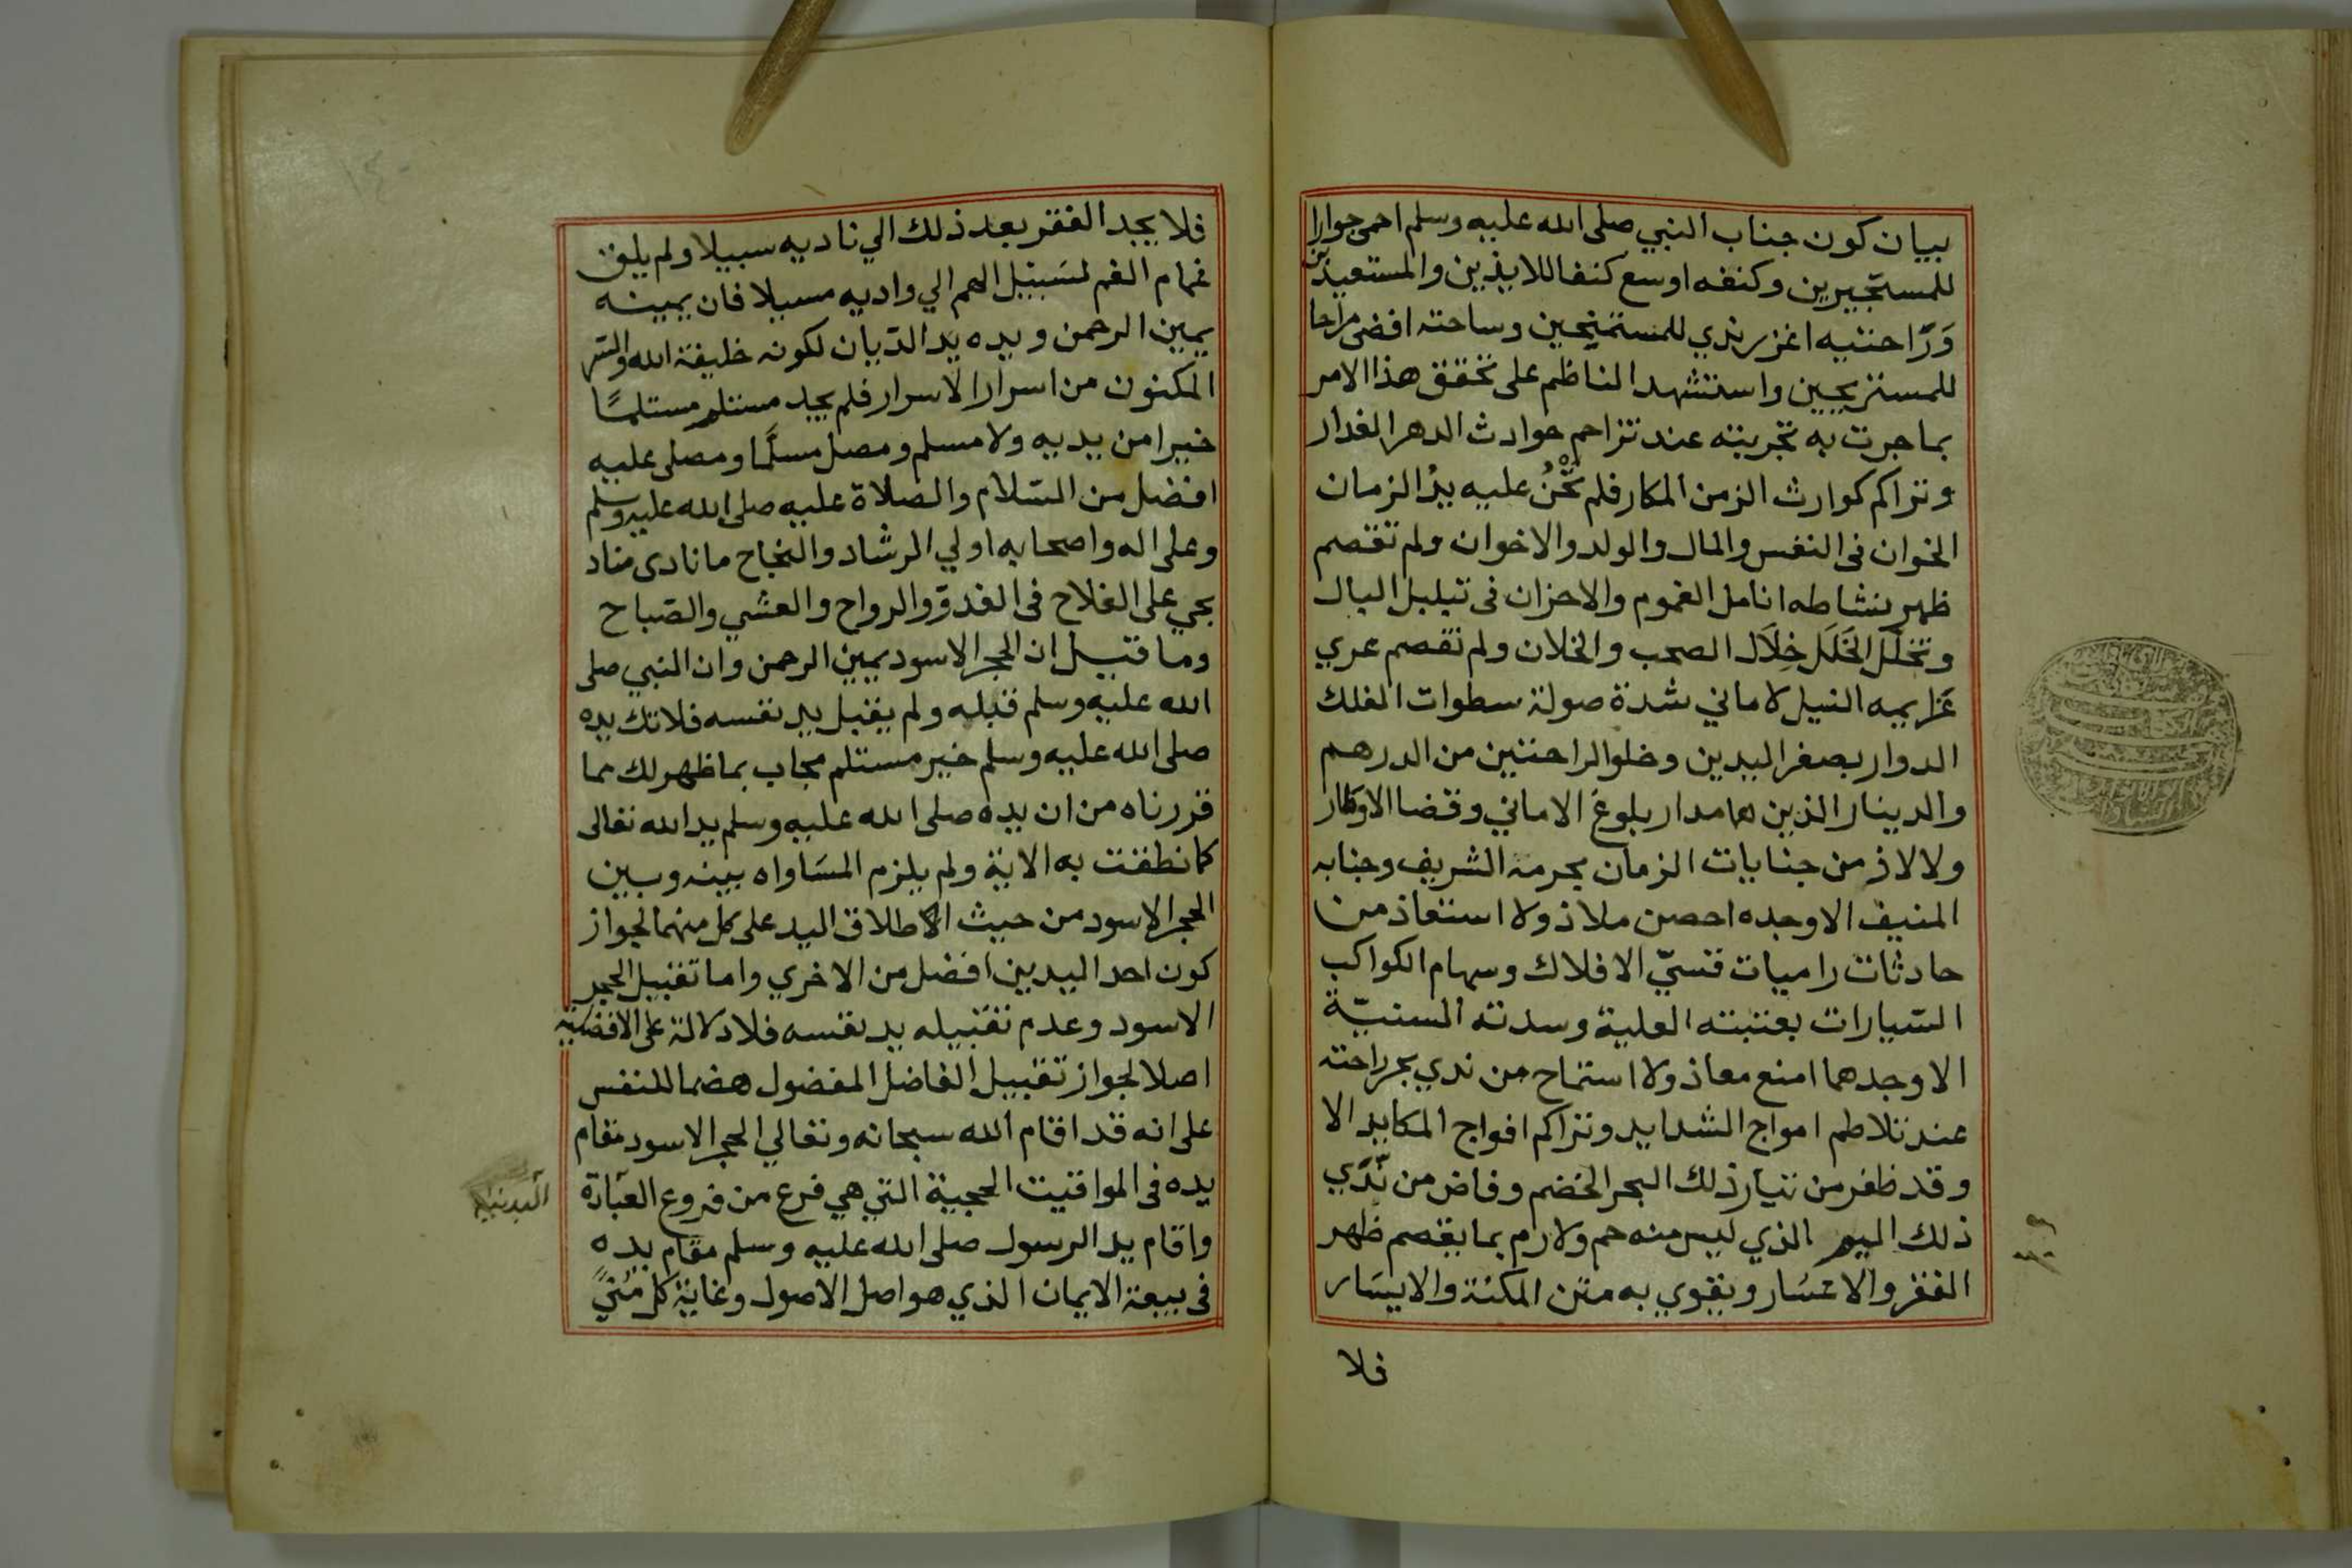 بيان كون جناب النبي صلى الله عليه وسلم احمى جوارا
للمستجيرين وكنفه اوسع كنفا للايذين والمستعيذين
وَرَّاحتيه اغزر ندي للمستمنحين وساحته افضى مراحا
للمستريحين واستشهد الناظم على تحقق هذا الامر
بما جرت به تجربته عند تزاحم حوادث الدهر الغدار
وتراكم كوارث الزمن المكار فلم تخنه عليه يد الزمان
الخوان فى النفس والمال والولد والاخوان ولم تقصم
ظهر نشاطه انامل الغموم والاحزان فى تبلبل البال
وتخلّل الخَلَل خِلَال الصحب والخلان ولم تفصم عري
عزايمه النيل لاماني شدة صولة سطوات الفلك
الدوار بصفر اليدين وخلو الراحتين من الدرهم
والدينار الذين هما مدار بلوغ الاماني وقضا الاوطار
ولا لاذ من جنايات الزمان بحرمة الشريف وجنابه
المنيف الا وجده احصن ملاذ ولا استعاذ من
حادثات راميات قسيّ الافلاك وسهام الكواكب
السّيارات بعتبته العلية وسدته السنيّة
الا وجدهما امنع معاذ ولا استماح من ندي بحر راحته
عند تلاطم امواج الشدايد وتراكم افواج المكايد الا
وقد ظفر من تيار ذلك البحر الخضم وفاض من نّدَي
ذلك اليم الذي ليس منه حم ولا رم بما يقصم ظهر
الفقر والاعسَار ويقوي به متن المكنة والايسَار
فلا
فلا يجد الفقر بعد ذلك الي ناديه سبيلا ولم يلق
غمام الغم لسَبيل الهم الي واديه مسيلا فان يمينه
يمين الرحمن ويده يد الدّيان لكونه خليفة الله والسّر
المكنون من اسرار الاسرار فلم يجد مستلم مستلمًا
خيرا من يديه ولا مسلم ومصل مسلّما ومصلى عليه
افضل من السّلام والصّلاة عليه صلى الله عليه وسلم
وعلى اله واصحابه اولي الرشاد والنجاح ما نادى مناد
بحي على الفلاح فى الغدوّ والرواح والعشي والصّباح
وما قيل ان الحجر الاسود يمين الرحمن وان النبي صلى
الله عليه وسلم قبله ولم يقبل يد نفسه فلا تك يده
صلى الله عليه وسلم خير مستلم مجاب بما ظهر لك مما
قررناه من ان يده صلى الله عليه وسلم يد الله تعالى
كما نطقت به الاية ولم يلزم المسَاواه بينه وبين
الحجر الاسود من حيث الاطلاق اليد على كل منهما لجواز
كون احد اليدين افضل من الاخري واما تقبيل الحجر
الاسود وعدم تقبيله يد نفسه فلا دلالة على الافضلية
اصلا لجواز تقبيل الفاضل المفضول هضما للنفس
على انه قد اقام الله سبحانه وتعالي الحجر الاسود مقام
يده فى المواقيت الحجية التي هي فرع من فروع العبَادة
البدنية
واقام يد الرسول صلى الله عليه وسلم مقام يده
فى بيعة الايمان الذي هو اصل الاصول وغاية كل مُنيً